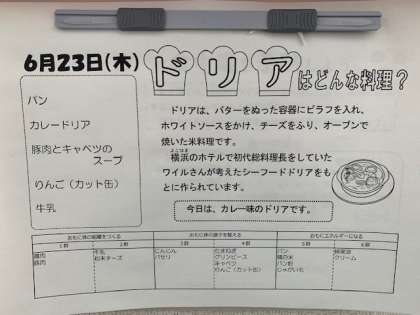 6月23日(木)
ドリアはどんな料理？
パン
カレードリア
豚肉とキャベツの
スープ
りんご（カット缶）
牛乳
ドリアは、バターをぬった容器にピラフを入れ、
ホワイトソースをかけ、チーズをふり、オーブンで
焼いた米料理です。
よこはま
横浜のホテルで初代総料理長をしていた
ワイルさんが考えたシーフードドリアをも
とに作られています。
今日は、カレー味のドリアです。
おもに体の組織をつくる
おもに体の調子を整える
おもにエネルギーになる
1群
2群
3群
4群
5群
6群
鶏肉
豚肉
牛乳
粉末チーズ
にんじん
パセリ
たまねぎ
グリンピース
キャベツ
りんご（カット缶）
パン
精白米
パン粉
じゃがいも
クリーム